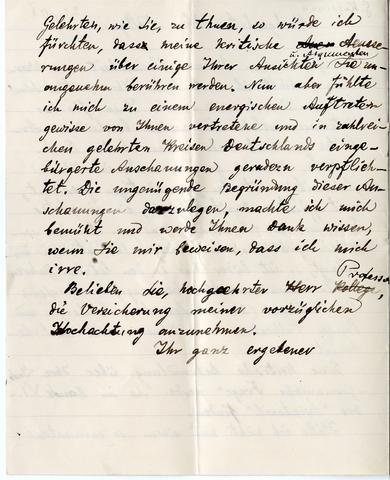 Gelehrten, wie Sie, zu thuen, so würde ich
fürchten, dass meine kritische Aeusse-
u. Argumenten
rungen über einige Ihrer Ansichten Sie un-
angenehm berühren werden. Nun aber fühlte
ich mich zu einem energischen Auftreten
gewisse von Ihnen vertretene und in zahlrei-
chen gelehrten Kreisen Deutschlands einge-
bürgerte Anschauungen geradezu verpflich-
tet. Die ungenügende Begründung dieser An-
schauungen darzulegen, machte ich mich
bemüht und werde Ihnen Dank wissen,
wenn Sie mir beweisen, dass ich mich
irre.
Professor
Belieben Sie, hochgeehrter Herr Kollege,
die Versicherung meiner vorzüglichen
Hochachtung anzunehmen.
Ihr ganz ergebener